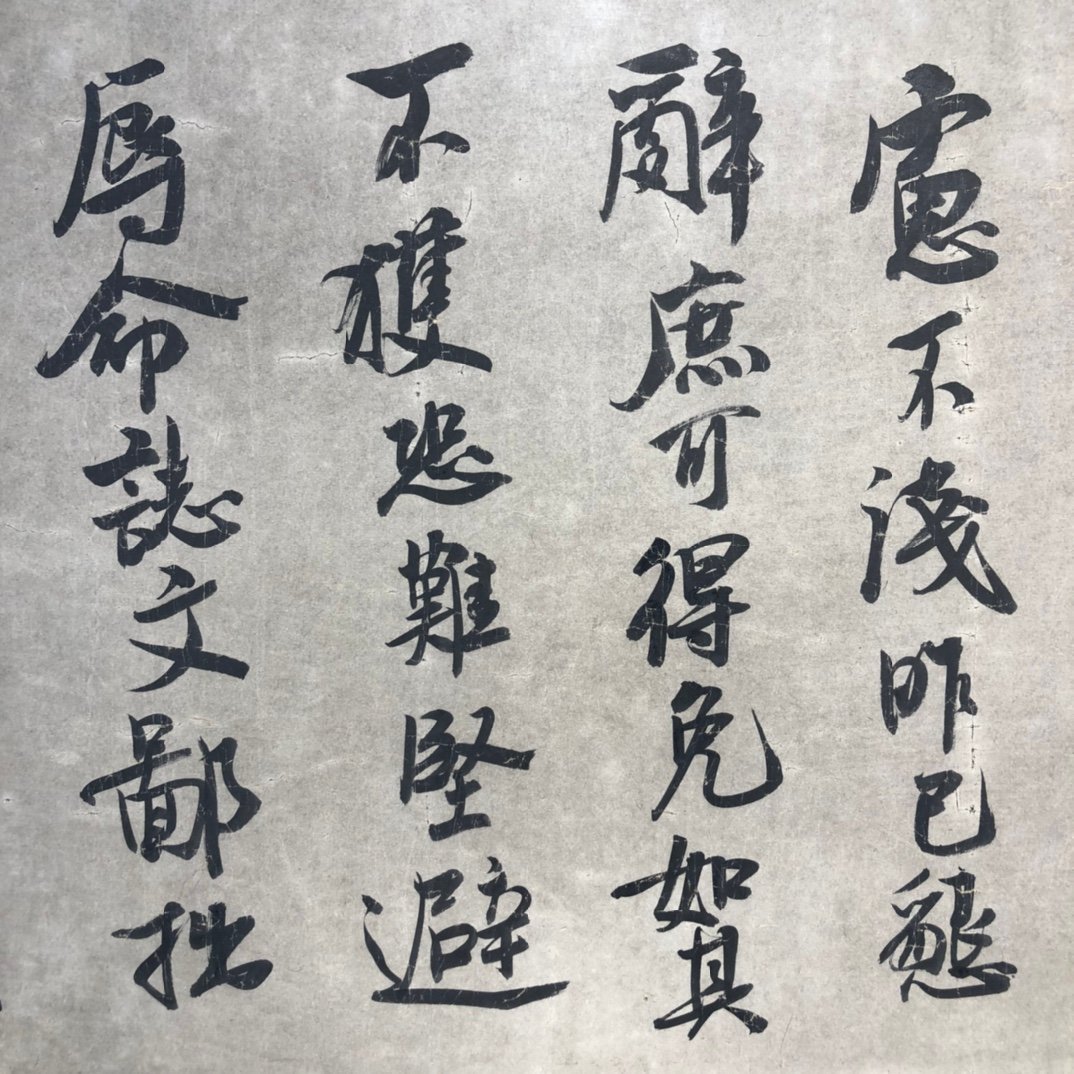 慮不淺昨已懇
辭庶可得免如其
不獲恐難堅避
辱命誌文鄙拙